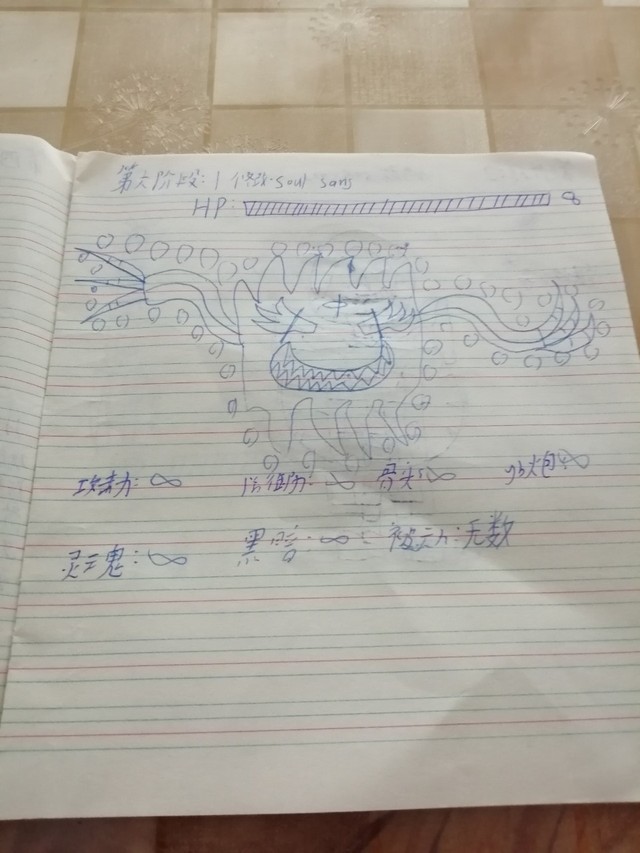 第六阶段: soul sans
HP: ∞
攻击力: ∞ 防御力: ∞ 骨头: ∞ gb炮: ∞
灵魂: ∞ 黑暗: ∞ 被动: 无数